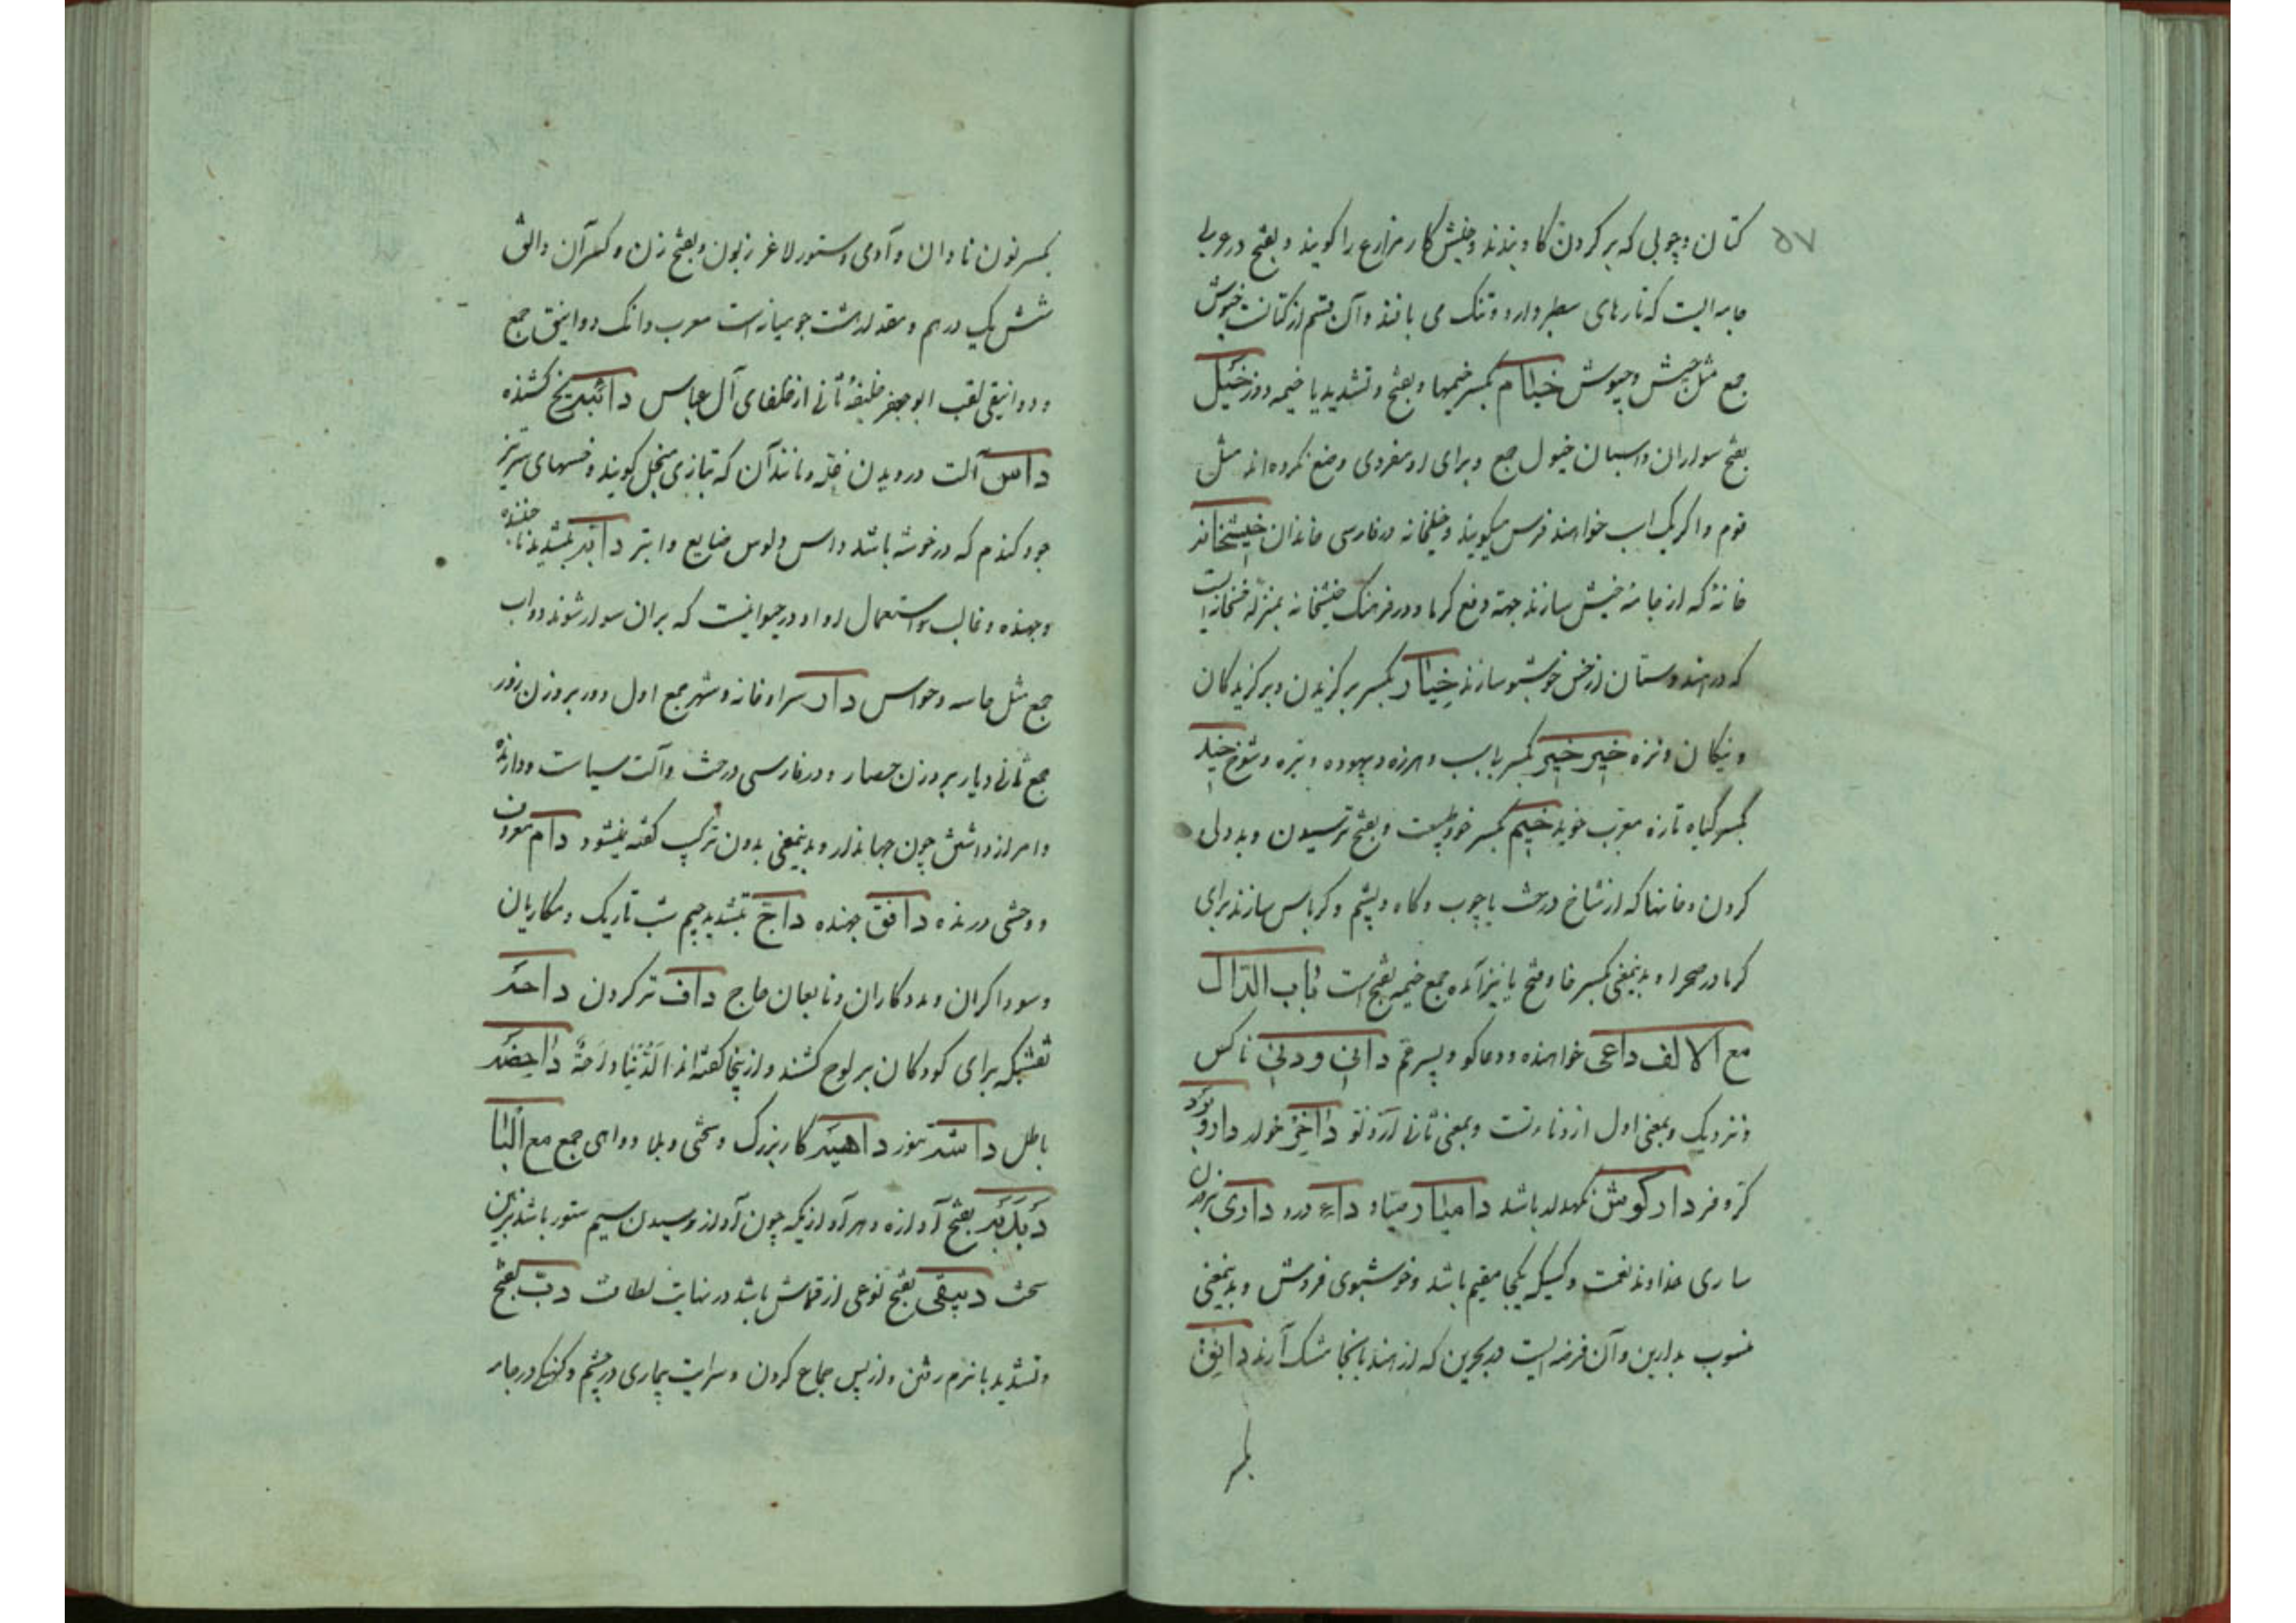 ۵۷
کتان و چوبی که بر کردن کاو بندند و خیش کار مزارع را کویند و بفتح در عربی
جامه ایست که تارهای سطبر دارد و تنک می بافند و آن قسم از کتانست خیوش
جمع مثل جیش و جیوش خیام بکسر خیمها و بفتح و تشدید یا خیمه دوز خیل
بفتح سواران و اسبان خیول جمع و برای او مفردی وضع نکرده اند مثل
قوم و اکر یک اسب خواهند فرس میکویند و خیلخانه در فارسی خاندان خیشخانه
خانۀ که از جامۀ خیش سازند جهة دفع کرما و در فرهنک خیشخانه بمنزلۀ خسخانه ایست
که در هندوستان از خس خوشبو سازند خیار بکسر برکزیدن و برکزیدکان
و نیکان و نزه خیر خیر بکسر بی سبب و هرزه و بیهوده و تیره و شوخ خید
بکسر کیاه تازه معرب خوید خیم بکسر خو و طبیعت و بفتح ترسیدن و بددلی
کردن و خانها که از شاخ درخت یا چوب و کاه و پشم و کرباس سازند برای
کرما در صحرا و بدینمعنی بکسر خا و فتح یا نیز آمده جمع خیمه بفتح است باب الدال
مع الالف داعی خواهنده و دعا کو و پسر عم دانی و دنی ناکس
و نزدیک و بمعنی اول از دنائتست و بمعنی ثانی از دنو داخر خوار دارو برد
کر و فر دارکوش نکهدار باشد دامیار صیاد داء درد داری بروزن
ساری خداوند نعمت و کسیکه یکجا مقیم باشد و خوشبوی فروش و بدینمعنی
منسوب بدارین و آن فرضه ایست در بحرین که از هند بانجا مشک آرند دانق
بکسر
بکسر نون نادان و آدمی و ستور لاغر زبون و بفتح زن و کسر آن دانق
شش یک درهم و مقدار هشت جو میانه است معرب دانک دوانیق جمع
و دوانیقی لقب ابو جعفر خلیفۀ ثانی از خلفای آل عباس دائبد یخ کشنده
داس آلت درویدن غله و مانند آن که بتازی منجل کویند و خسهای سرتیز
جو و کندم که در خوشه باشد و داس ولوس ضایع و ابتر دابه بتشدید با جنبنده
و جهنده و غالب استعمال او در حیوانیست که بران سوار شوند دواب
جمع مثل حاسه و حواس دار سرا و خانه و شهر جمع اول دور بروزن زور
جمع ثانی دیار بروزن حصار و در فارسی درخت و آلت سیاست و دارنده
و امر از داشتن چون جهاندار و بدینمعنی بدون ترکیب کفته نمیشود دام معروف
و وحشی درنده دافق جهنده داج بتشدید جیم شب تاریک و مکاریان
و سوداکران و مددکاران و تابعان حاج داف تر کردن داحه
نقشیکه برای کودکان بر لوح کشند و از ینجا کفته اند الدنیا داحة داحضه
باطل داشه تموز داهیه کار بزرک و سختی و بلا دواهی جمع مع البا
دبدبه بفتح آوازه و هر آوازیکه چون آواز رسیدن سم ستور باشد بزمین
سخت دبیقی بفتح نوعی از قماش باشد در نهایت لطافت دب بفتح
و تشدید با نرم رفتن و از پس جماع کردن و سرایت بیماری در جسم و کهنکی در جامه